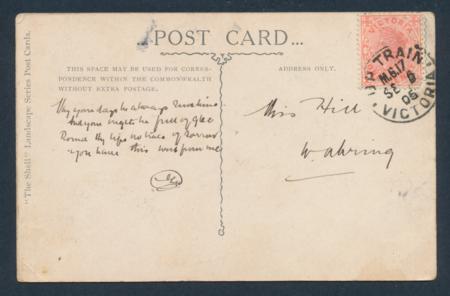 POST CARD
THIS SPACE MAY BE USED FOR CORRES-
PONDENCE WITHIN THE COMMONWEALTH
WITHOUT EXTRA POSTAGE.
ADDRESS ONLY.
May your days be always Sunshine
And your nights be full of glee
Round thy life no lines of Sorrow
you have this wish from me
Miss Hill
Wahring
"The Shell" Landscape Series Post Cards.
VICTORIA
UP TRAIN
M.G.17
SE 6
05
VICTORIA